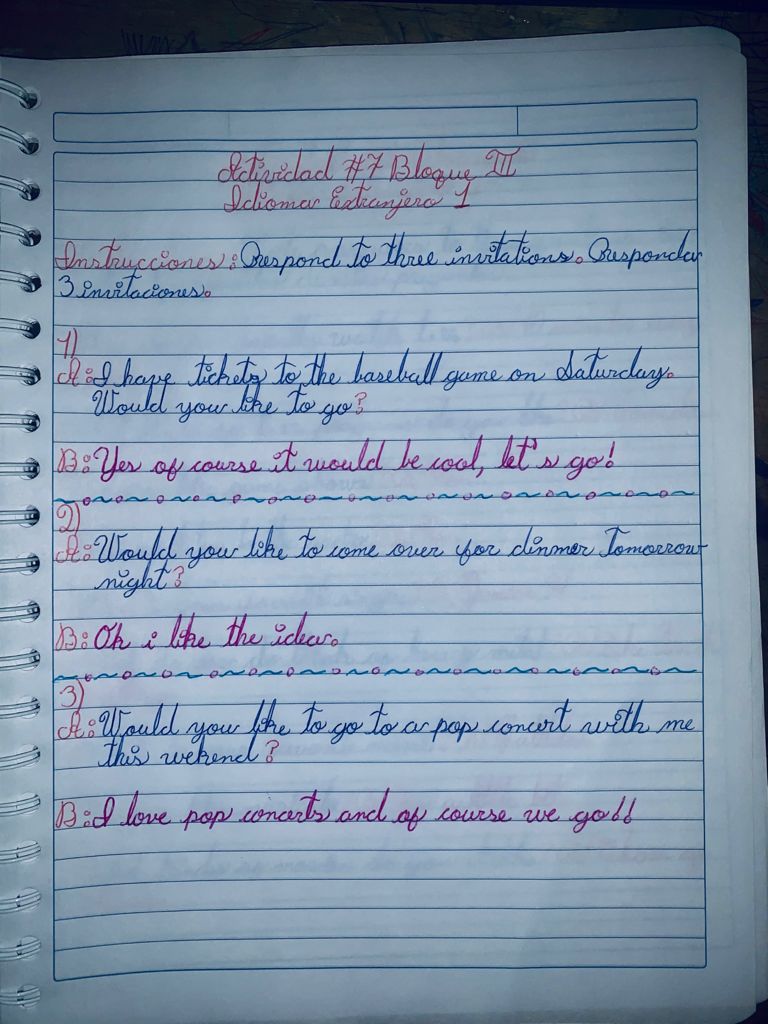 Actividad #7 Bloque III
Idioma Extranjero 1
Instrucciones: Respond to three invitations. Responda
3 invitaciones.
1)
A: I have tickets to the baseball game on Saturday.
Would you like to go?
B: Yes of course it would be cool, let's go!
2)
A: Would you like to come over for dinner Tomorrow
night?
B: Oh i like the idea.
3)
A: Would you like to go to a pop concert with me
this wekend?
B: I love pop concerts and of course we go!!